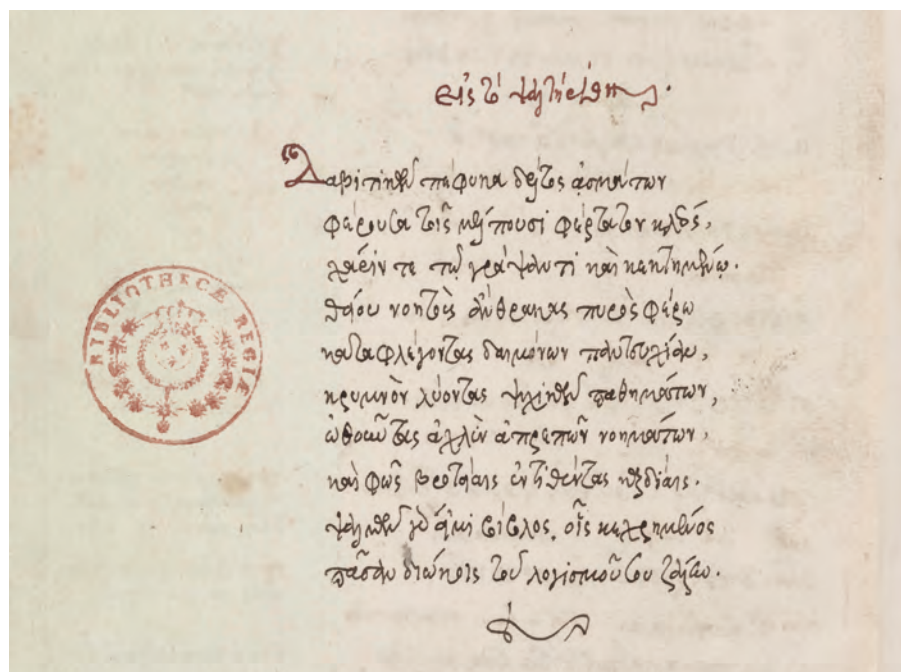 Εἰς τὸ ψαλτήριον.
Δαβιτικῶν πέφυκα δέλτος ᾀσμάτων
φέρουσα τοῖς μέλπουσι φέρτατον κλέος,
χάριν τε τῷ γράψαντι καὶ κεκτημένῳ.
θείου νοητοὺς ἄνθρακας πυρὸς φέρω
καταφλέγοντας δαιμόνων
κρυμνὸν λύοντας ψυχικῶν παθημάτων,
ὠθοῦντας ἀχλὺν ἀπρεπῶν νοημάτων,
καὶ φῶς βροτείαις ἐντιθέντας καρδίαις.
ψαλμῶν γὰρ εἰμὶ βίβλος, οἷς κεχρημένος
πᾶσαν διώκοις τοῦ λογισμοῦ σου ζάλην.
BIBLIOTHECÆ REGIÆ